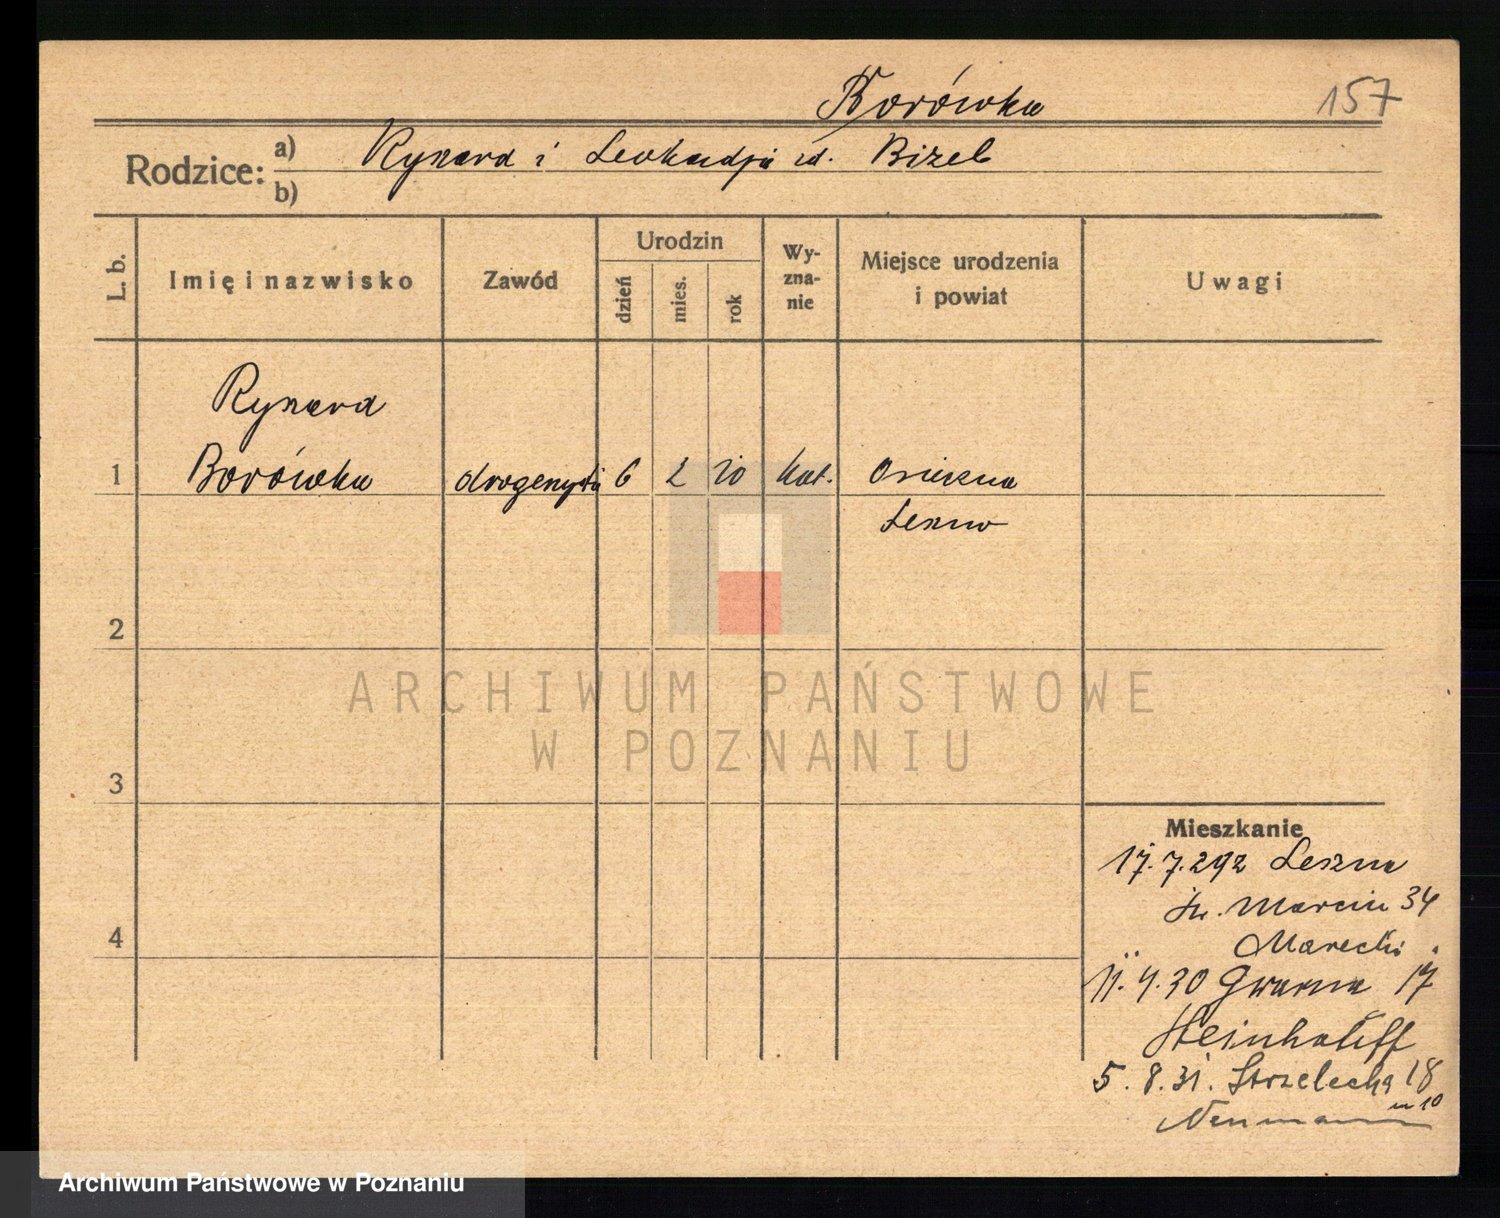 Borówka 157
Rodzice: a) Ryszard i Leokadja ur. Bizel
b)
L. b. Imię i nazwisko Zawód Urodzin dzień mies. rok Wy-zna-nie Miejsce urodzenia i powiat Uwagi
Ryszard
1 Borówka drogerzysta 6 2 10 kat. Osieczna
Leszno
2
ARCHIWUM PAŃSTWOWE
W POZNANIU
3
Mieszkanie
17.7.29 z Leszna
św. Marcin 34
4 Marecki
11.4.30 Gwarna 17
5.8.31. Strzelecka 18
m 10
Neumann
Archiwum Państwowe w Poznaniu